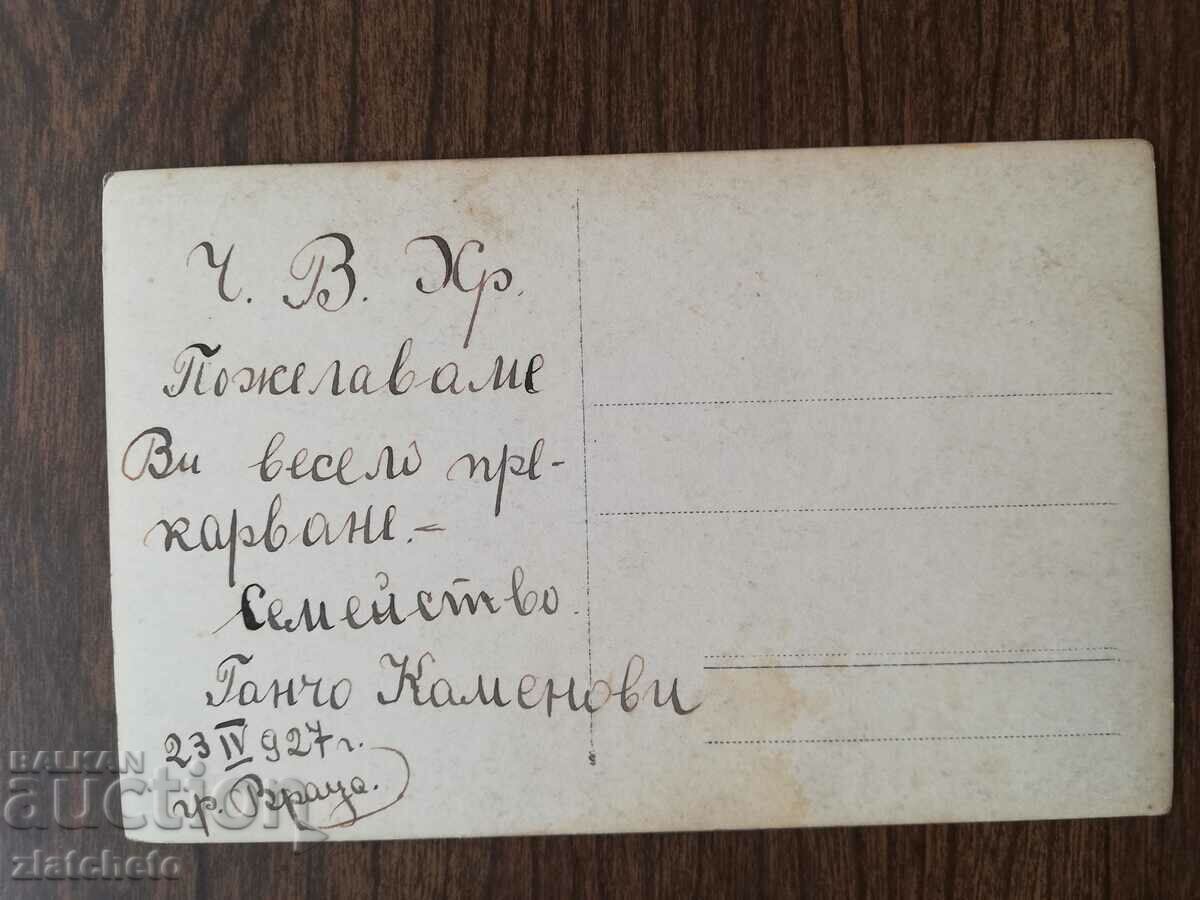 Ч. В. Хр.
Пожелаваме
Ви весело пре-
карване. –
Семейство.
Ганчо Каменови
23 IV 927 г.
гр. Враца.
BALKAN
auction
zlatcheto